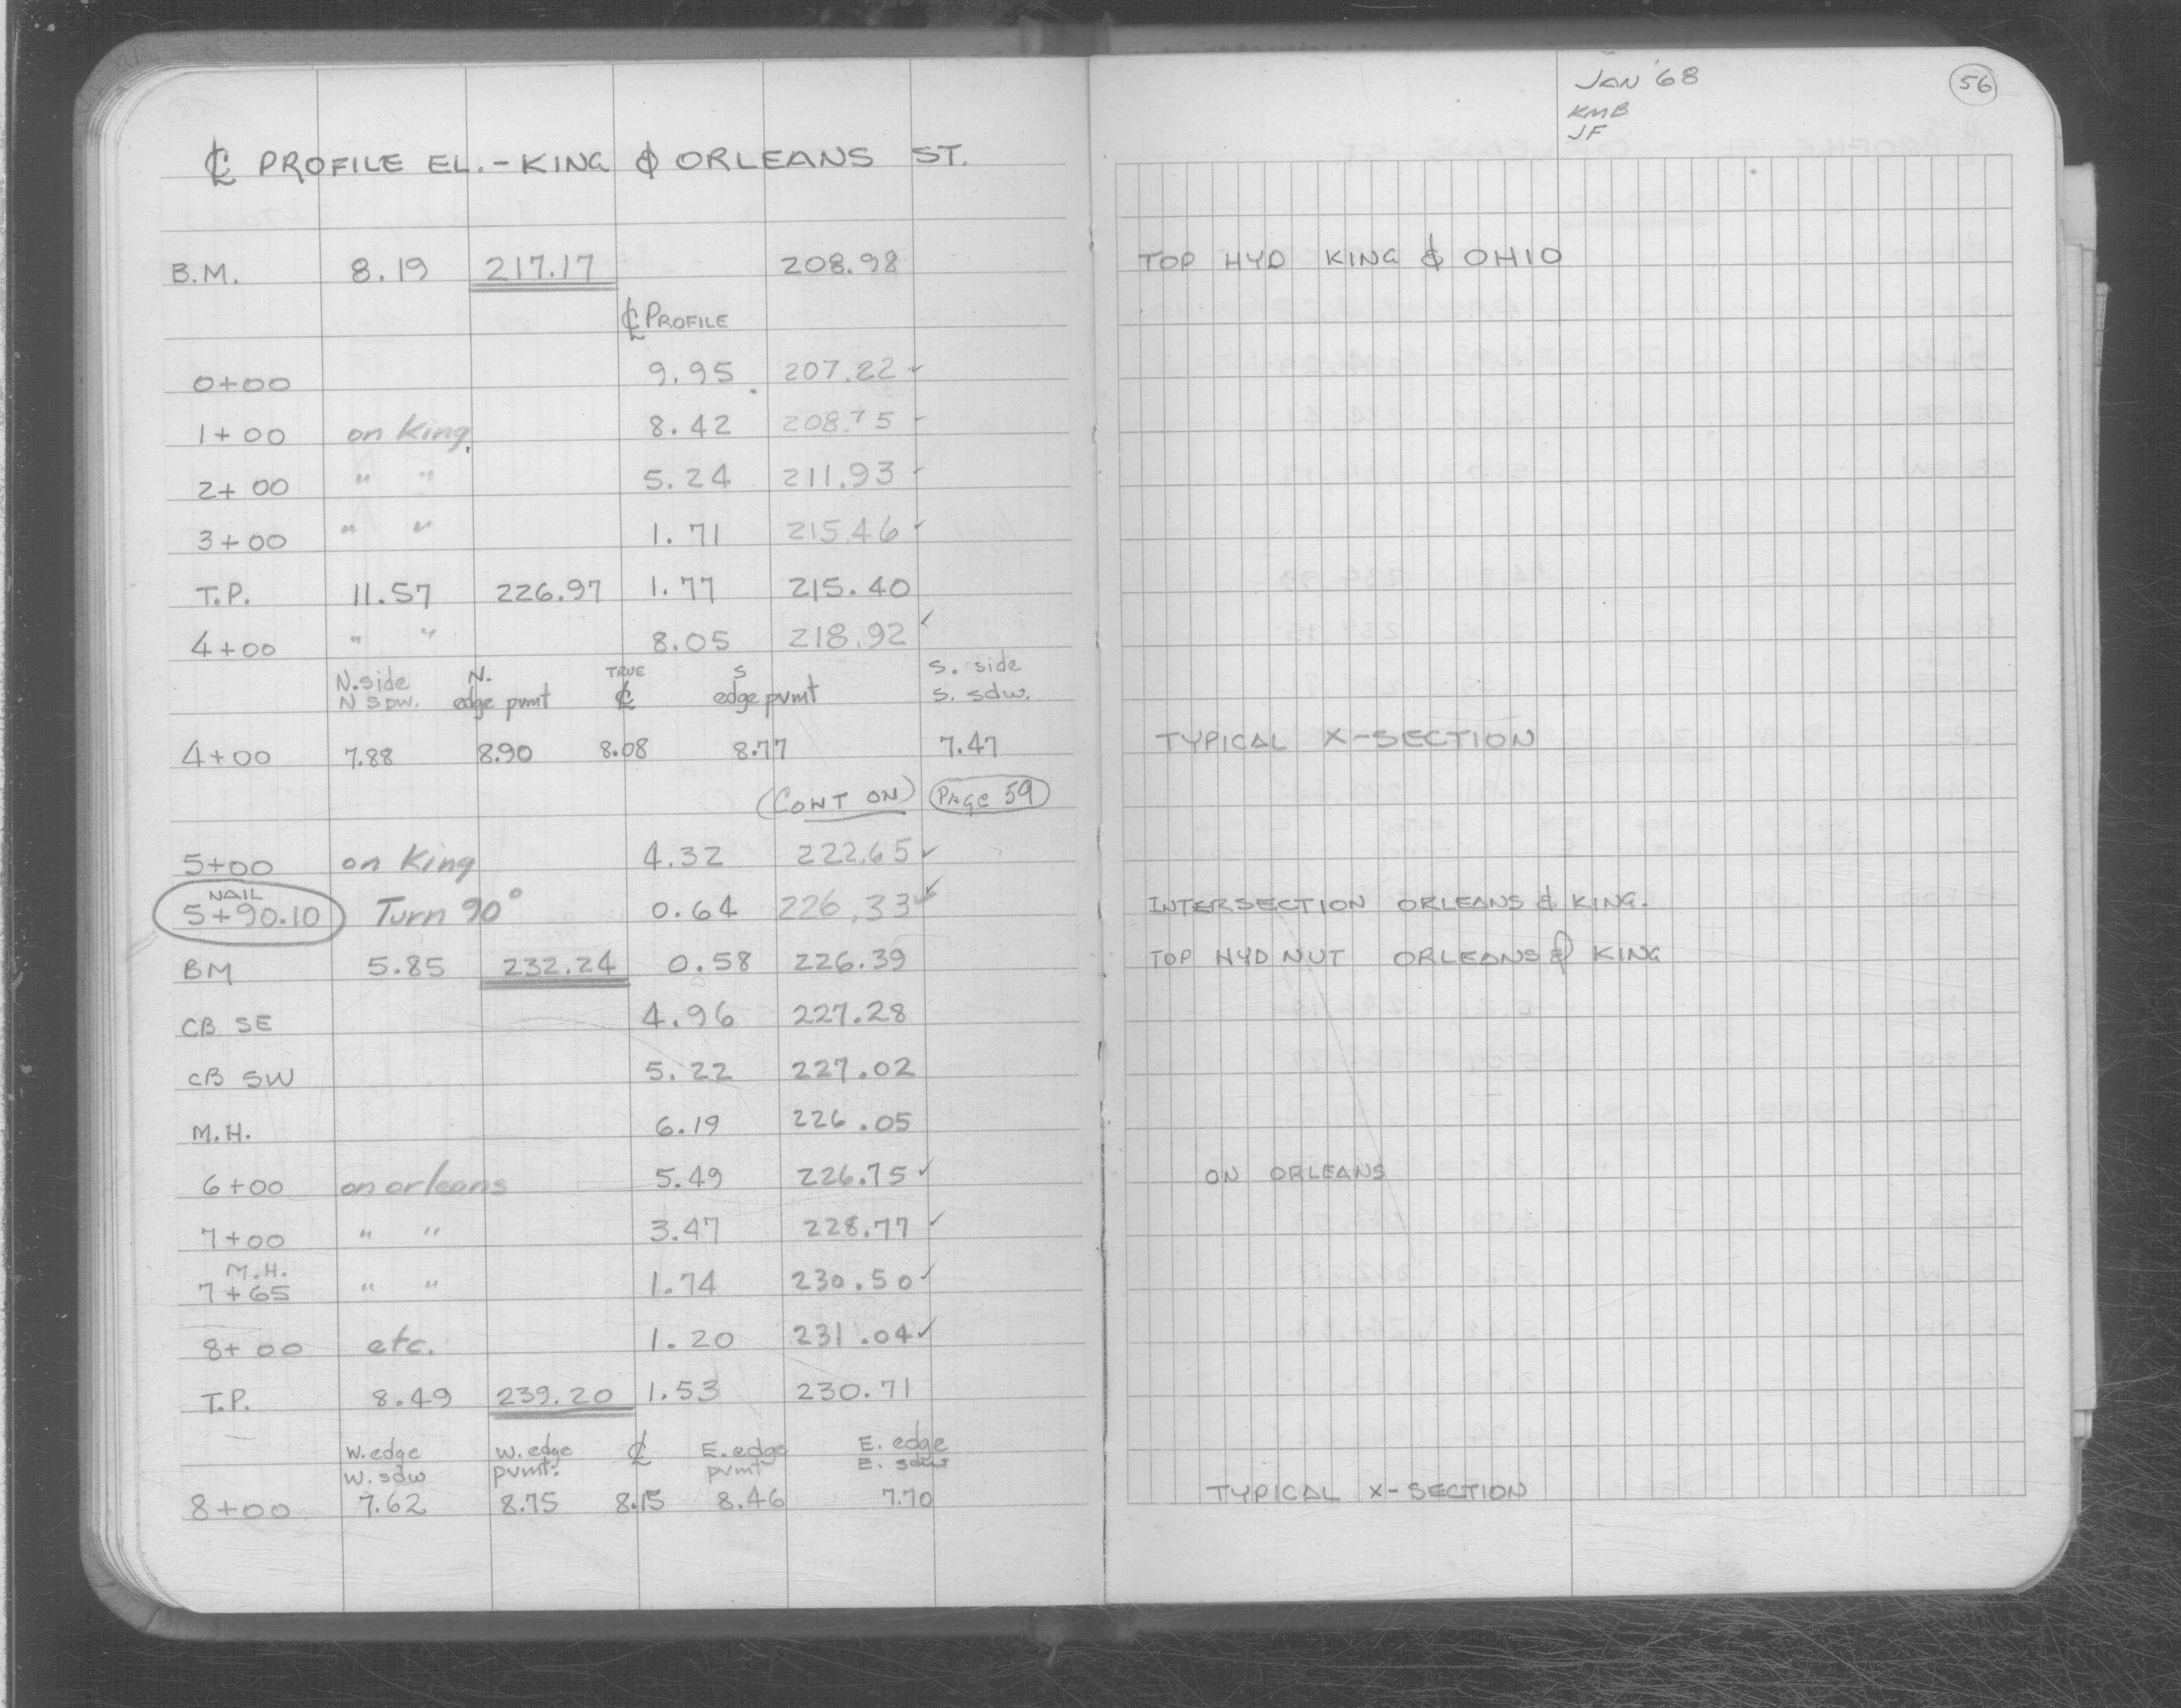 ℄ PROFILE EL. - KING & ORLEANS ST.
B.M. 8.19 217.17 208.98
℄ PROFILE
0+00 9.95 207.22 ✓
1+00 on King 8.42 208.75 ✓
2+00 " " 5.24 211.93 ✓
3+00 " " 1.71 215.46 ✓
T.P. 11.57 226.97 1.77 215.40
4+00 " " 8.05 218.92 ✓
N. side N. TRUE S S. side
N SDW. edge pvmt ℄ edge pvmt S. sdw.
4+00 7.88 8.90 8.08 8.77 7.47
(CONT ON) PAGE 59
5+00 on King 4.32 222.65 ✓
NAIL
5+90.10 Turn 90° 0.64 226.33 ✓
BM 5.85 232.24 0.58 226.39
CB SE 4.96 227.28
CB SW 5.22 227.02
M.H. 6.19 226.05
6+00 on orleans 5.49 226.75 ✓
7+00 " " 3.47 228.77 ✓
M.H.
7+65 " " 1.74 230.50 ✓
8+00 etc. 1.20 231.04 ✓
T.P. 8.49 239.20 1.53 230.71
W. edge W. edge ℄ E. edge E. edge
W. sdw pvmt. pvmt E. sdw
8+00 7.62 8.75 8.15 8.46 7.70
JAN '68
KMB
JF
56
TOP HYD KING & OHIO
TYPICAL X-SECTION
INTERSECTION ORLEANS & KING.
TOP HYD NUT ORLEANS & KING
ON ORLEANS
TYPICAL X-SECTION